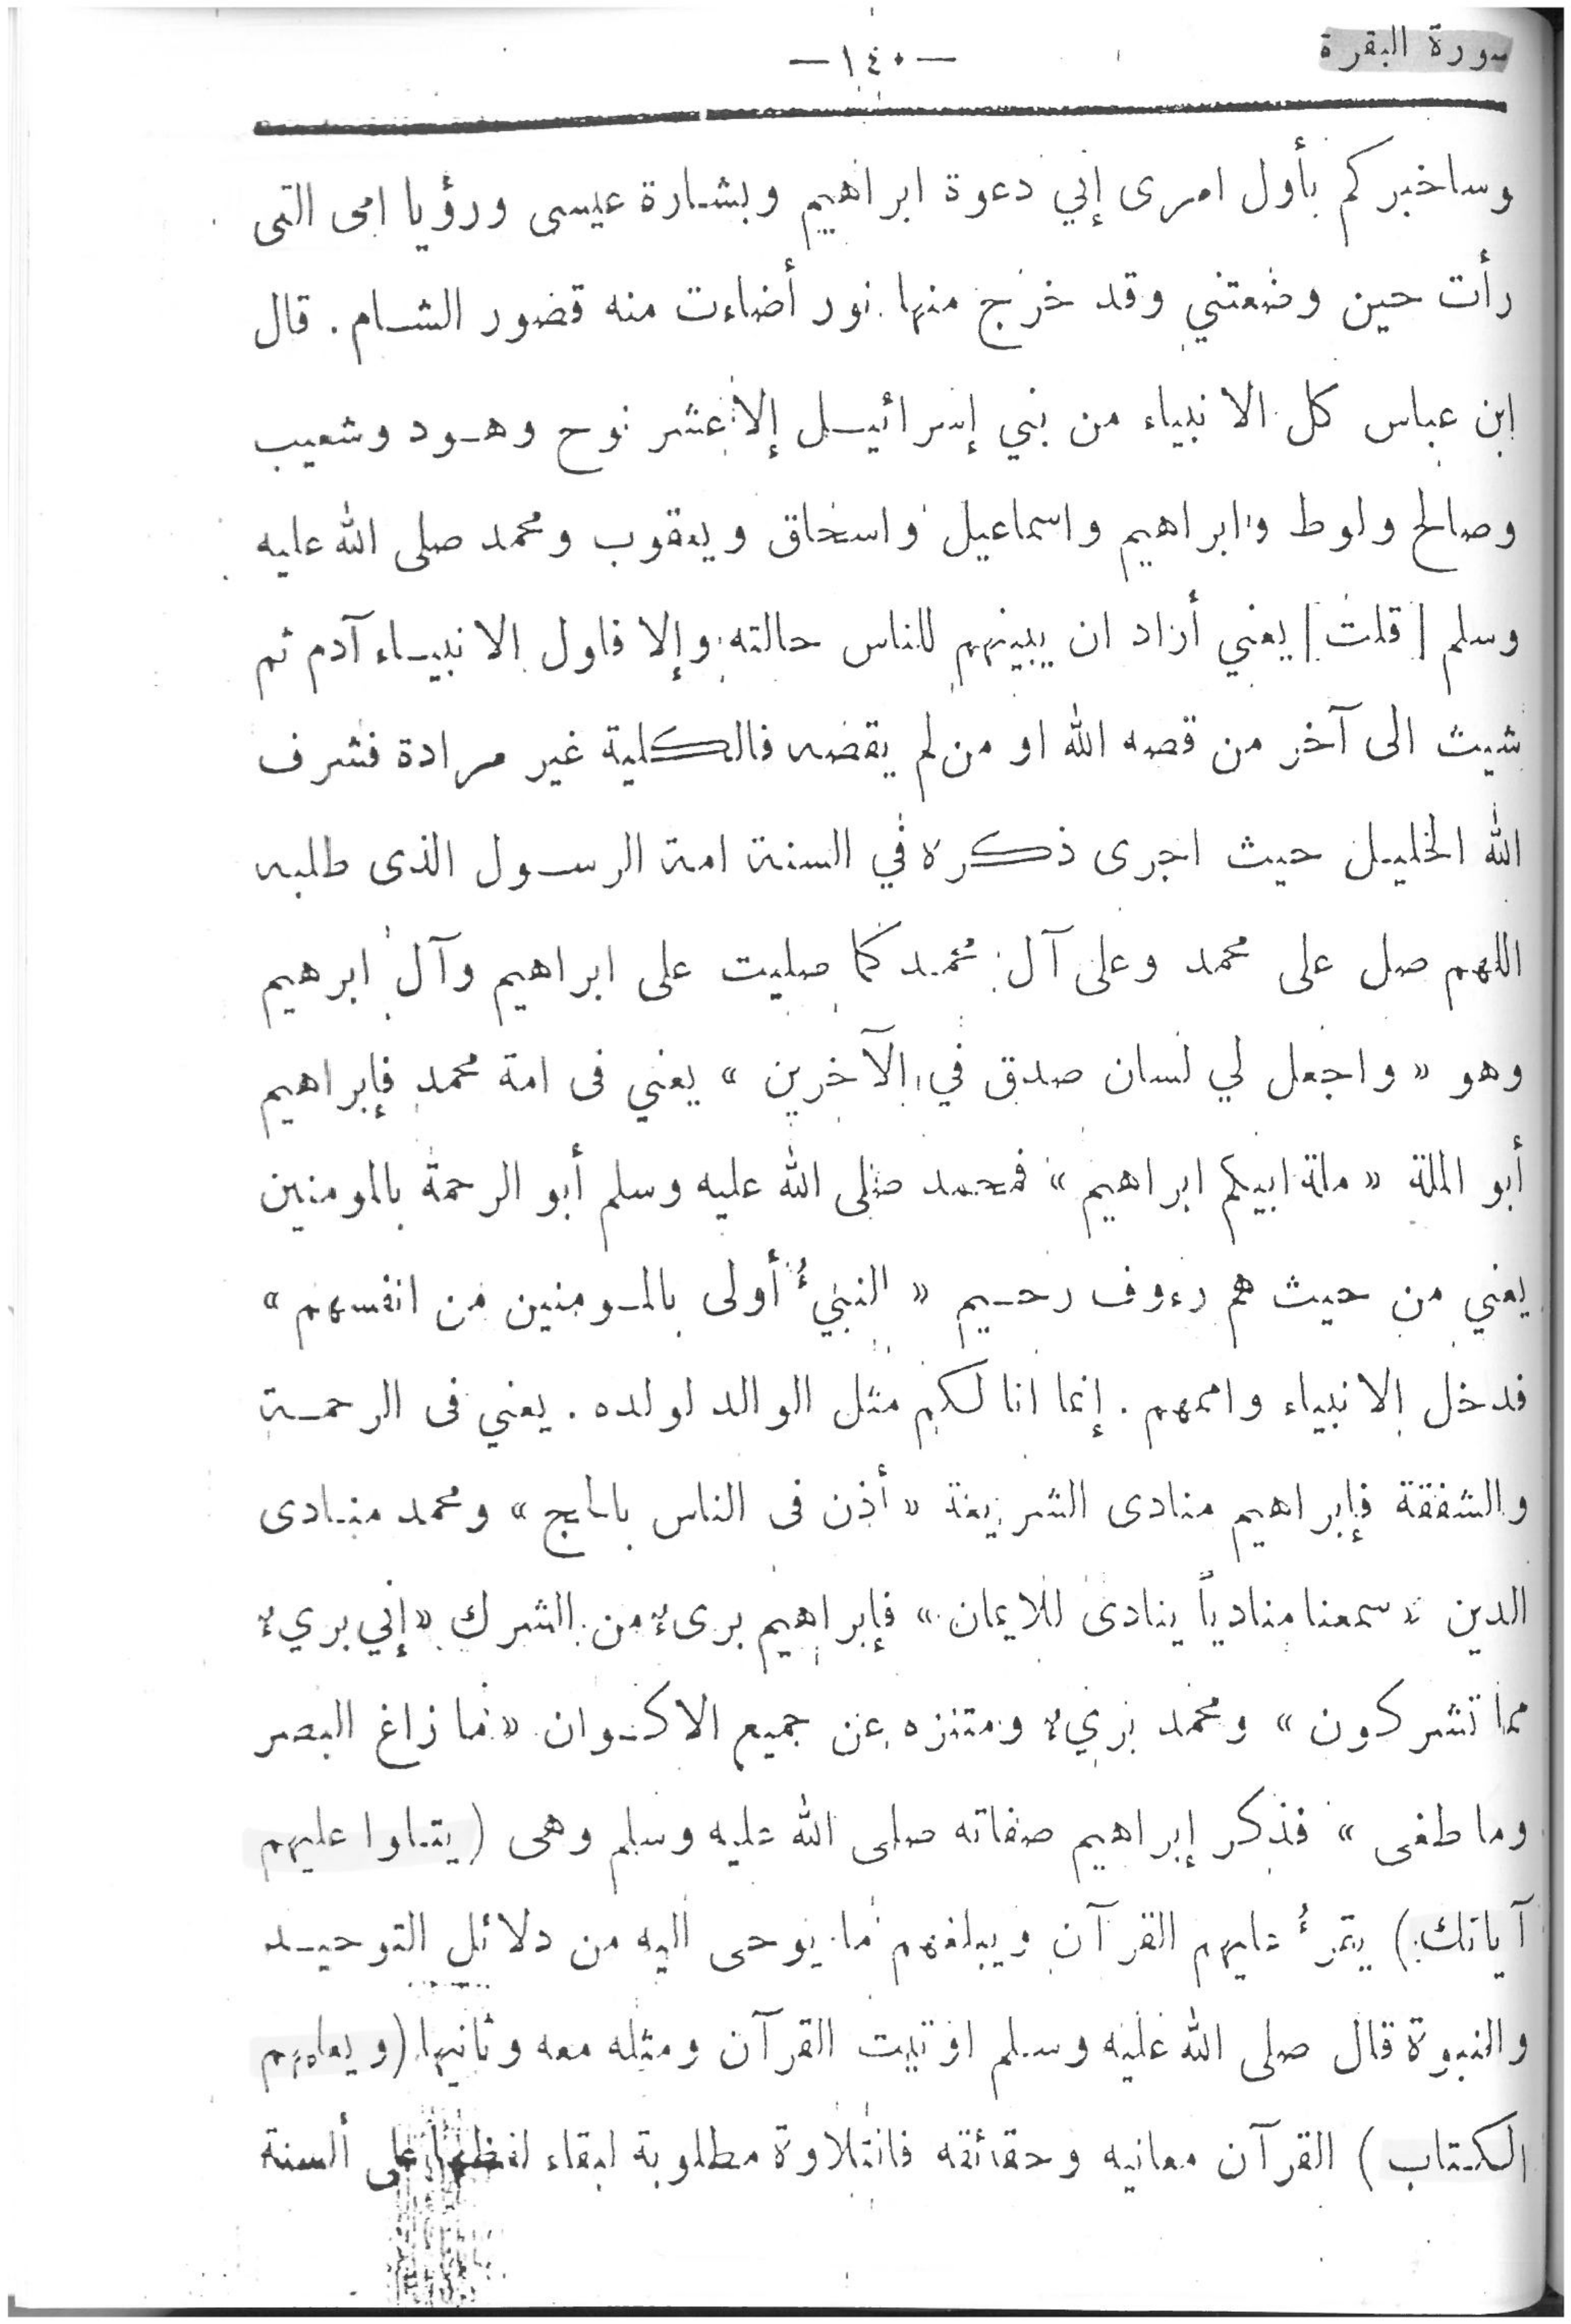 سورة البقرة
—١٤٠—
وساخبركم بأول امرى إني دعوة ابراهيم وبشارة عيسى ورؤيا امى التى
رأت حين وضعتني وقد خرج منها نور أضاءت منه قصور الشام . قال
ابن عباس كل الانبياء من بني إسرائيل إلا عشر نوح وهود وشعيب
وصالح ولوط وابراهيم واسماعيل واسحاق ويعقوب ومحمد صلى الله عليه
وسلم [قلت] يعني أراد ان يبينهم للناس حالته وإلا فاول الانبياء آدم ثم
شيث الى آخر من قصه الله او من لم يقصه فالكلية غير مرادة فشرف
الله الخليل حيث اجرى ذكره في السنة امة الرسول الذى طلبه
اللهم صل على محمد وعلى آل محمد كما صليت على ابراهيم وآل ابرهيم
وهو « واجعل لي لسان صدق في الآخرين » يعني فى امة محمد فإبراهيم
أبو الملة « ملة ابيكم ابراهيم » فمحمد صلى الله عليه وسلم أبو الرحمة بالمومنين
يعني من حيث هم رءوف رحيم « النبيُّ أولى بالمومنين من انفسهم »
فدخل الانبياء واممهم . إنما انا لكم مثل الوالد لولده . يعني فى الرحمة
والشفقة فإبراهيم منادى الشريعة « أذن فى الناس بالحج » ومحمد منادى
الدين « سمعنا منادياً ينادى للايمان » فإبراهيم برىء من الشرك « إني بريء
مما تشركون » ومحمد بريء ومتنزه عن جميع الاكوان « ما زاغ البصر
وما طغى » فذكر إبراهيم صفاته صلى الله عليه وسلم وهى (يتلوا عليهم
آياتك) يقرأُ عليهم القرآن ويبلغهم ما يوحى اليه من دلائل التوحيد
والنبوة قال صلى الله عليه وسلم اوتيت القرآن ومثله معه وثانيها (ويعلمهم
الكتاب) القرآن معانيه وحقائقه فالتلاوة مطلوبة لبقاء لفظها على ألسنة